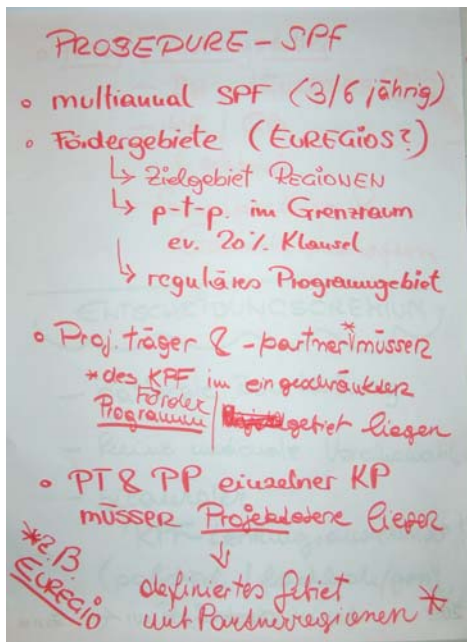 PROSEDURE - SPF
◦ multianual SPF (3/6 jährig)
◦ Fördergebiete (EUREGIOS?)
↳ Zielgebiet REGIONEN
↳ p-t-p. im Grenzraum
ev. 20% Klausel
↳ reguläres Programmgebiet
◦ Proj. träger & -partner* müssen
* des KPF im eingeschränkten
Förder
Programm gebiet liegen
◦ PT & PP einzelner KP
müssen liegen
↓
definiertes Gebiet
mit Partnerregionen *
* z.B
EUREGIO